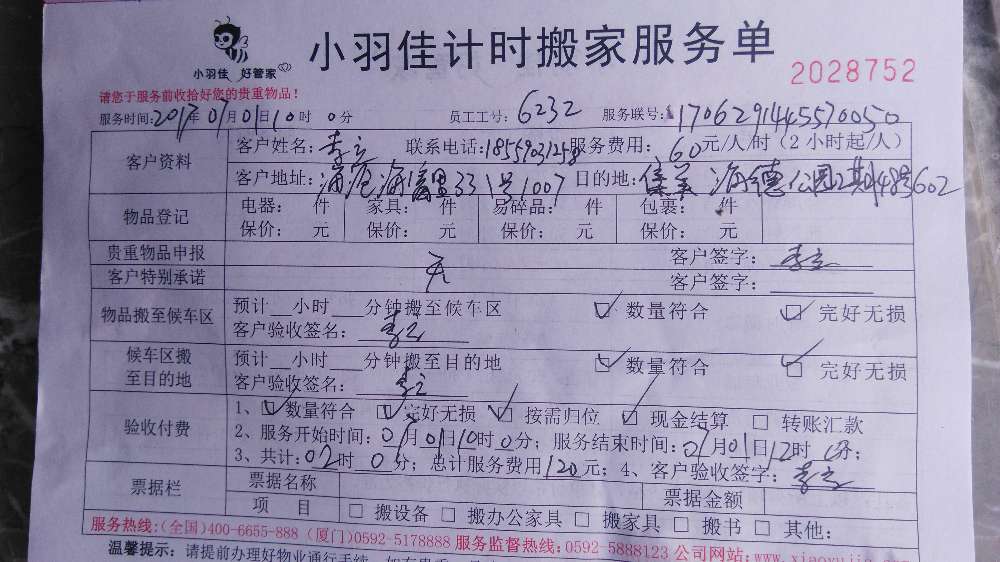 小羽佳计时搬家服务单
小羽佳 好管家
2028752
请您于服务前收拾好您的贵重物品！
服务时间：2017年07月01日10时0分 员工工号：6232 服务联号：1706291445570050
客户资料
客户姓名：李立 联系电话：18559031258 服务费用：60元/人/时（2小时起/人）
客户地址：海沧海富里331号1007 目的地：集美海德公园2期48号602
物品登记
电器： 件 家具： 件 易碎品： 件 包裹： 件
保价： 元 保价： 元 保价： 元 保价： 元
贵重物品申报 无 客户签字：李立
客户特别承诺 客户签字：
物品搬至候车区
预计__小时___分钟搬至候车区 ☑数量符合 ☑完好无损
客户验收签名：李立
候车区搬至目的地
预计__小时___分钟搬至目的地 ☑数量符合 ☑完好无损
客户验收签名：李立
验收付费
1、☑数量符合 ☑完好无损 ☑按需归位 ☑现金结算 □转账汇款
2、服务开始时间：07月01日10时0分；服务结束时间：07月01日12时0分；
3、共计：02时0分；总计服务费用120元；4、客户验收签字：李立
票据栏
票据名称 票据金额
项 目 □搬设备 □搬办公家具 □搬家具 □搬书 □其他：
服务热线：(全国)400-6655-888 (厦门)0592-5178888 服务监督热线：0592-5888123 公司网站：www.xiaoyujia.com
温馨提示：请提前办理好物业通行手续